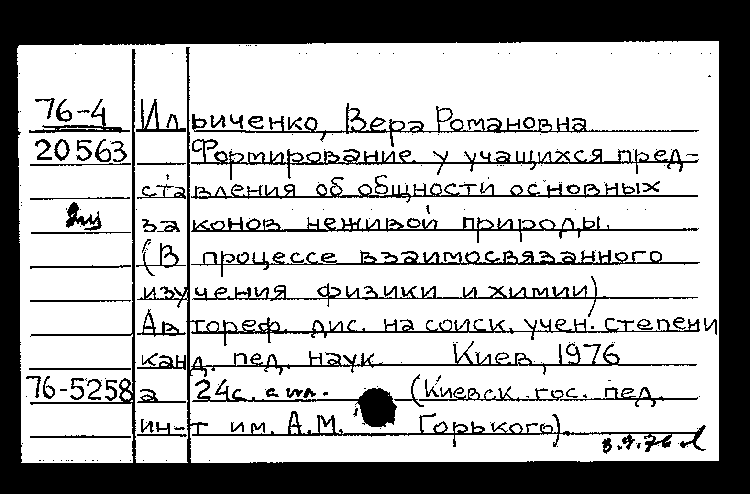 76-4 Ильиченко, Вера Романовна
20563 Формирование у учащихся пред-
ставления об общности основных
законов неживой природы.
(В процессе взаимосвязанного
изучения физики и химии).
Автореф. дис. на соиск. учен. степени
канд. пед. наук Киев, 1976
76-5258а 24с. с ил. (Киевск. гос. пед.
ин-т им. А.М. Горького).